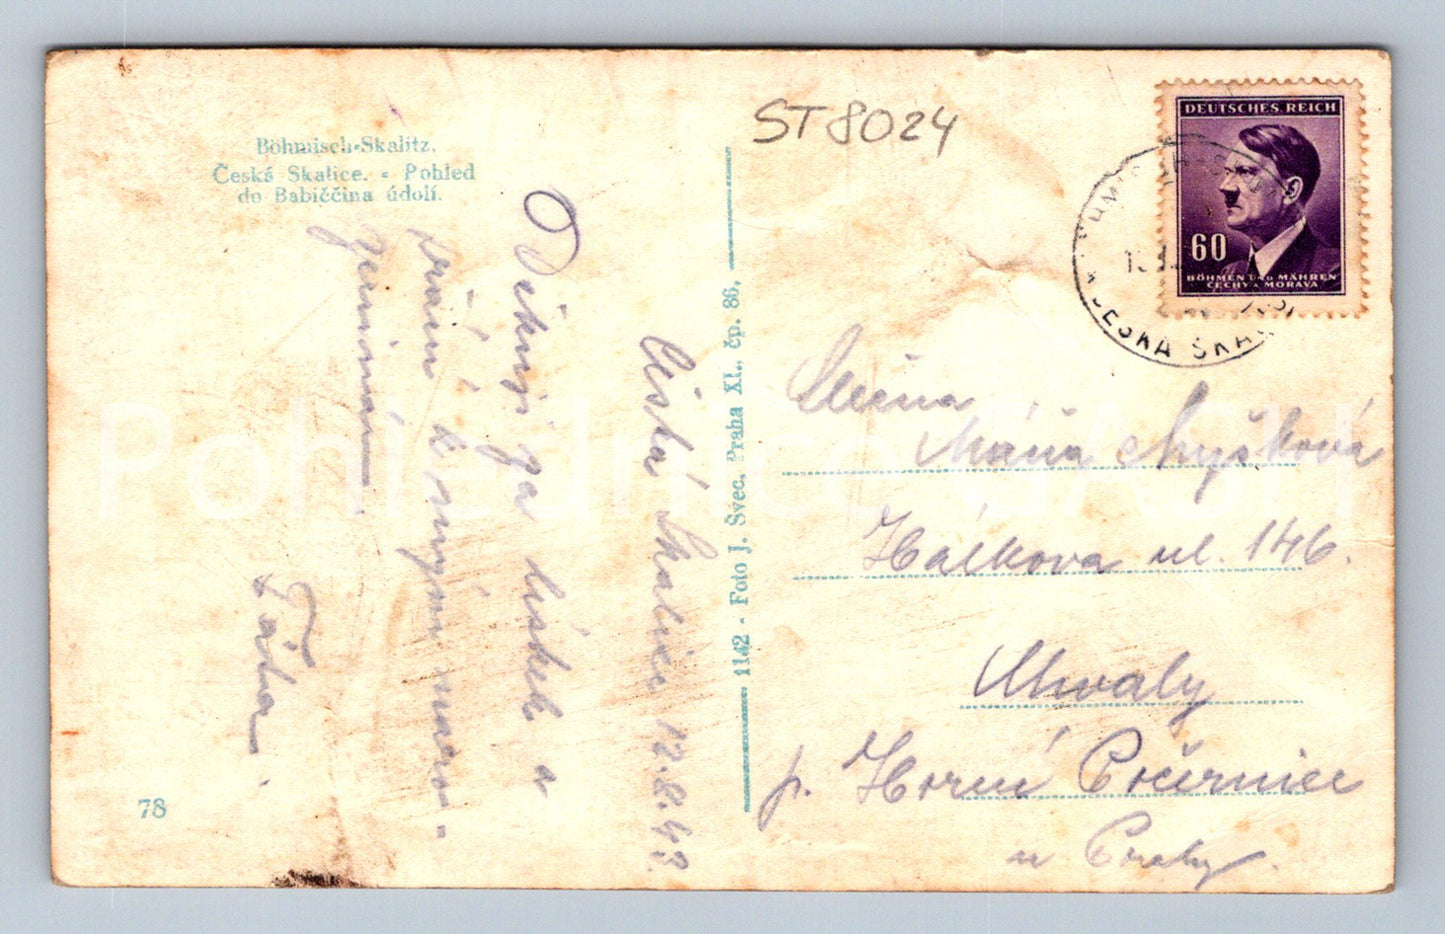 Böhmisch-Skalitz.
Česká Skalice. - Pohled
do Babiččina údolí.
ST 8024
DEUTSCHES REICH
60
BÖHMEN UND MÄHREN
ČECHY A MORAVA
ČESKÁ SKA
Česká Skalice 12.8.43.
Děkuji za lístek a
k
Táňa.
1142 - Foto J. Švec, Praha XI., čp. 86,
78
Slečna
Máňa Myšková
Hálkova ul. 146.
Chvaly
p. Horní Počernice
u Prahy.